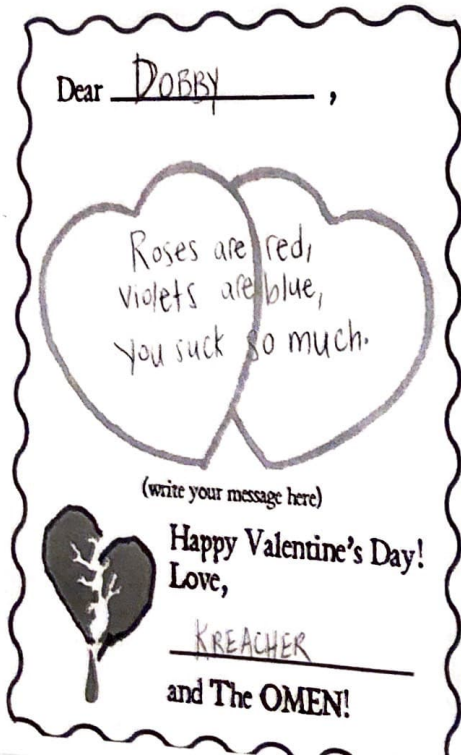 Dear DOBBY,
Roses are red,
violets are blue,
you suck so much.
(write your message here)
Happy Valentine's Day!
Love,
KREACHER
and The OMEN!